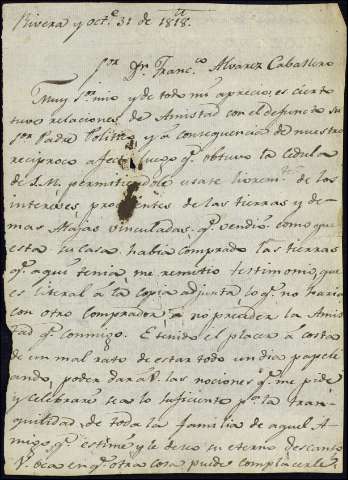 Rivera y octe. 31 de 1818.
Sor Dn. Franco. Alvarez Caballero
Muy Sor. mio y de todo mi aprecio, es cierto
tuve relaciones de Amistad con el defuncto su
Sor. Padre Politico y a consequencia de nuestro
reciproco afecto luego q. obtuvo la cedula
de S. M. permitiendole usase libremte. de los
intereses procedentes de las tierras y de-
mas Alajas vinculadas q. vendió como que
esta su casa había comprado las tierras
q. aqui tenia me remitio testimonio, que
es literal á la copia adjunta lo q. no haria
con otro comprador a no preceder la Amis-
tad q. conmigo. E tenido el placer á costa
de un mal rato de estar todo un dia papele-
ando, poder dar á V. las nociones q. me pide
y celebraré sea lo suficiente pa. la tran-
quilidad de toda la familia de aquel A-
migo q. estimé y le deseo su eterno descanso
V. vea en q. otra cosa puede complacerle